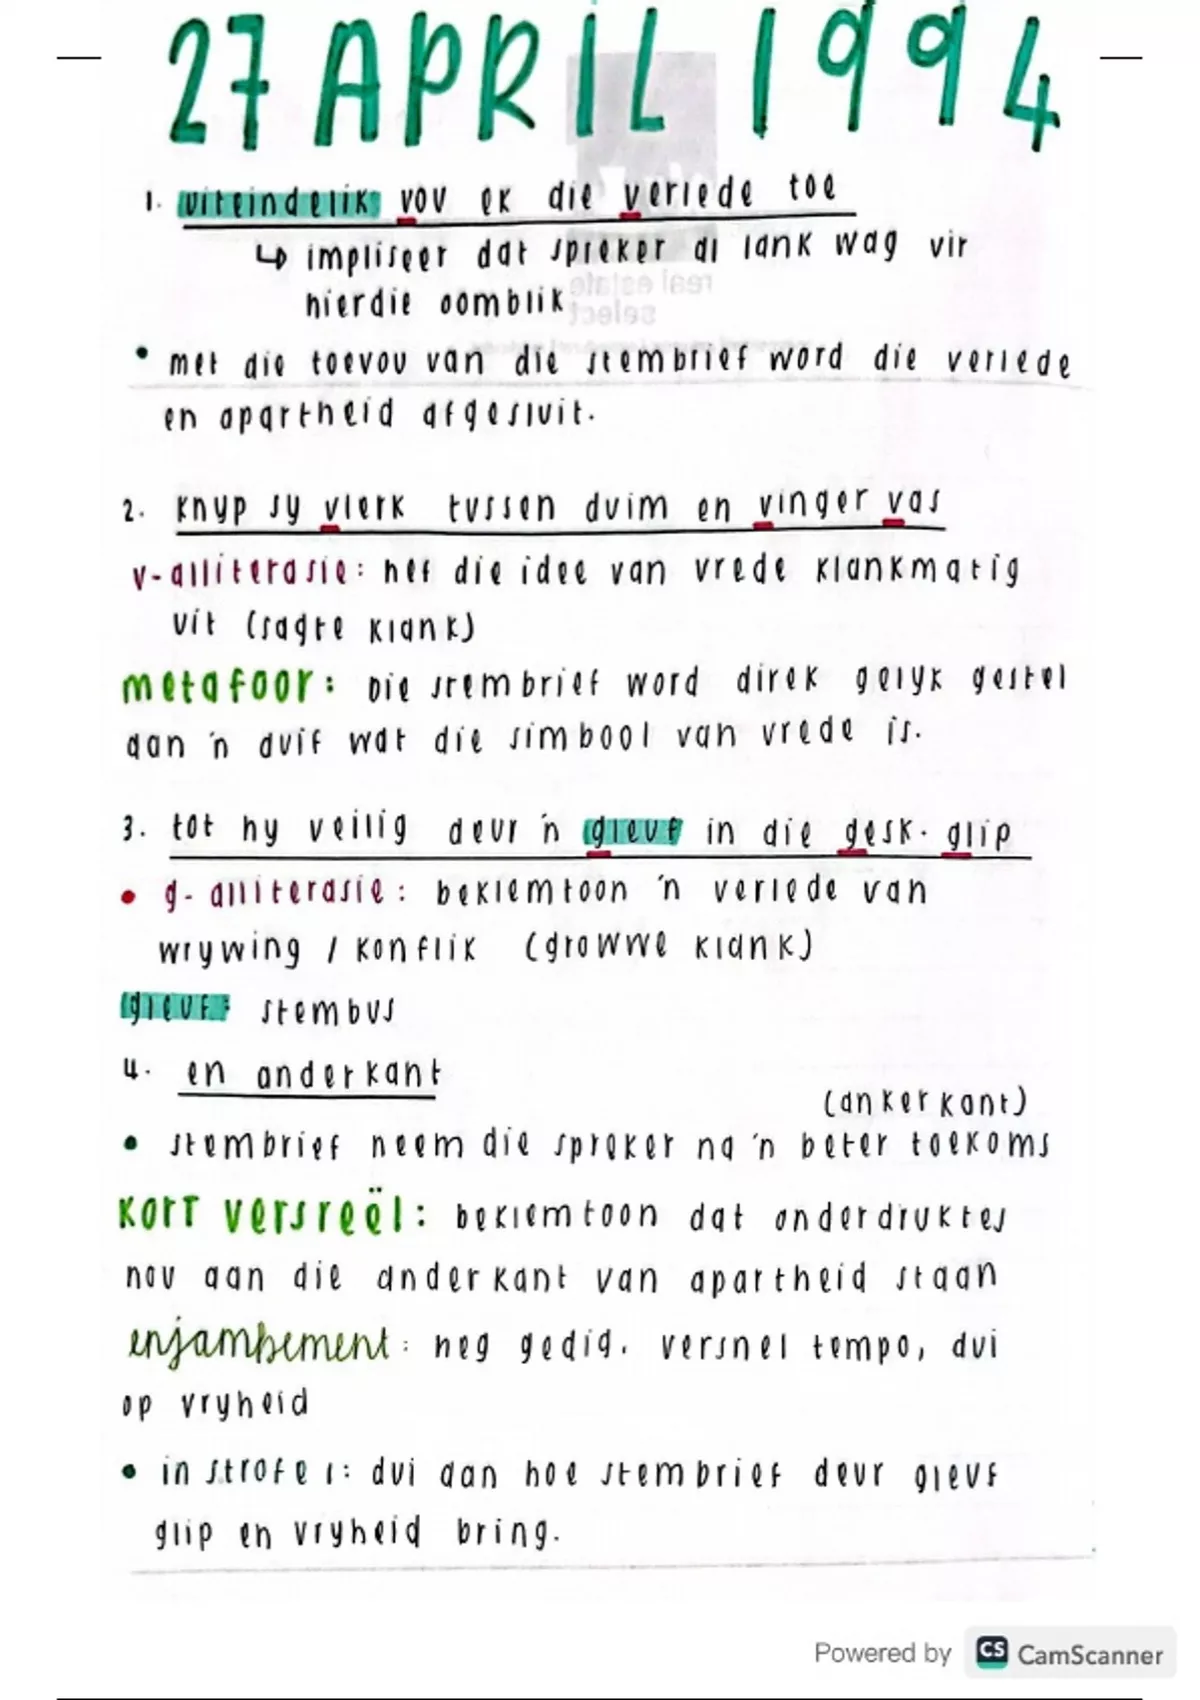 27 APRIL 1994
1. uiteindelik vou ek die verlede toe
↳ impliseer dat spreker al lank wag vir
hierdie oomblik
real estate
select
• met die toevou van die stembrief word die verlede
en apartheid afgesluit.
2. knyp sy vlerk tussen duim en vinger vas
v-alliterasie: hef die idee van vrede klankmatig
uit (sagte klank)
metafoor: Die stembrief word direk gelyk gestel
aan 'n duif wat die simbool van vrede is.
3. tot hy veilig deur 'n gleuf in die gesk. glip
• g-alliterasie: beklemtoon 'n verlede van
wrywing / konflik (growwe klank)
gleuf: stembus
4. en anderkant
(ankerkant)
• stembrief neem die spreker na 'n beter toekoms
kort versreël: beklemtoon dat onderdruktes
nou aan die anderkant van apartheid staan
enjambement: heg gedig. versnel tempo, dui
op vryheid
• in strofe 1: dui aan hoe stembrief deur gleuf
glip en vryheid bring.
Powered by CS CamScanner